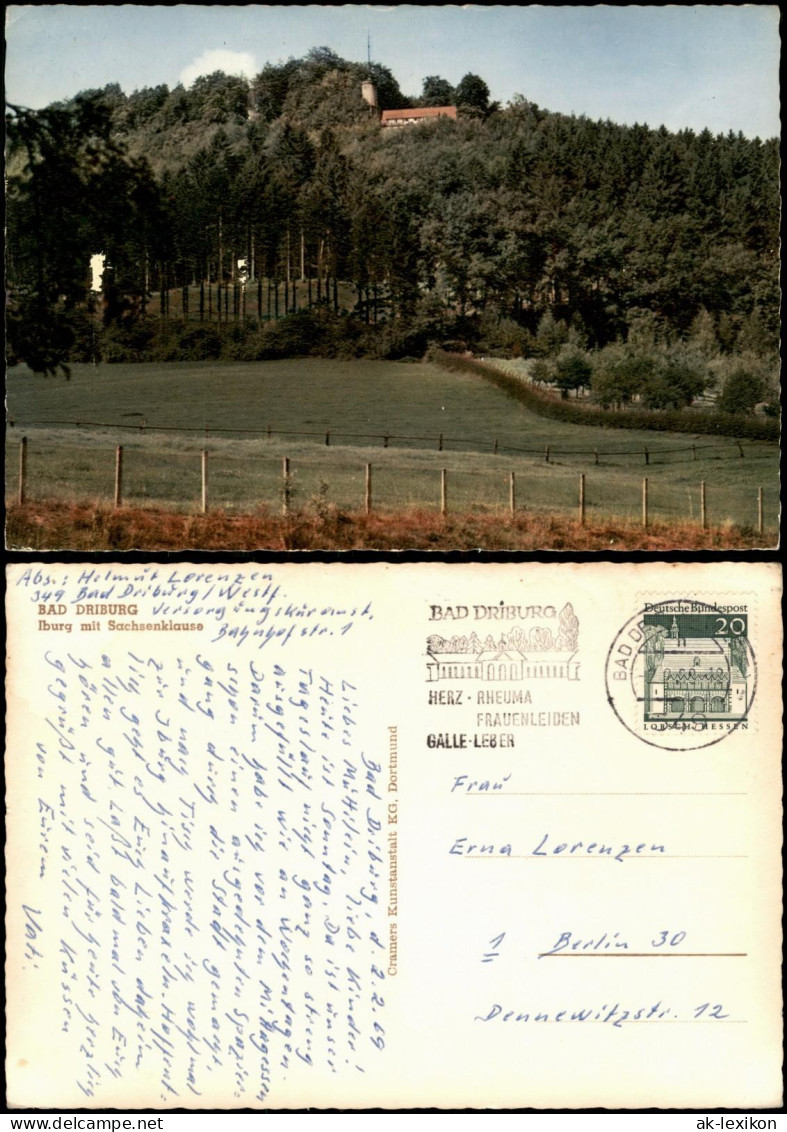 Abs.: Helmut Lorenzen
349 Bad Driburg/Westf.
Versorgungskuranst.
Bahnhofstr. 1
BAD DRIBURG
Iburg mit Sachsenklause
Bad Driburg, d. 2.2.69
Liebes Muttilein, liebe Kinder!
Heute ist Sonntag. Da ist unser
Tageslauf nicht ganz so streng
ausgefüllt wie an Wochentagen.
Darum habe ich vor dem Mittagessen
schon einen ausgedehnten Spazier-
gang durch die Stadt gemacht,
und nach Tisch werde ich wohl mal
zur Iburg hinaufkraxeln. Hoffent-
lich geht es Euch Lieben daheim
allen gut. Laßt bald mal von Euch
hören und seid für heute herzlich
gegrüßt mit vielen Küssen
von Eurem Vati.
Cramers Kunstanstalt KG, Dortmund
BAD DRIBURG
HERZ · RHEUMA
FRAUENLEIDEN
GALLE · LEBER
BAD DR
349
Deutsche Bundespost
20
LORSCH/HESSEN
Frau
Erna Lorenzen
1 Berlin 30
Dennewitzstr. 12
ak-lexikon